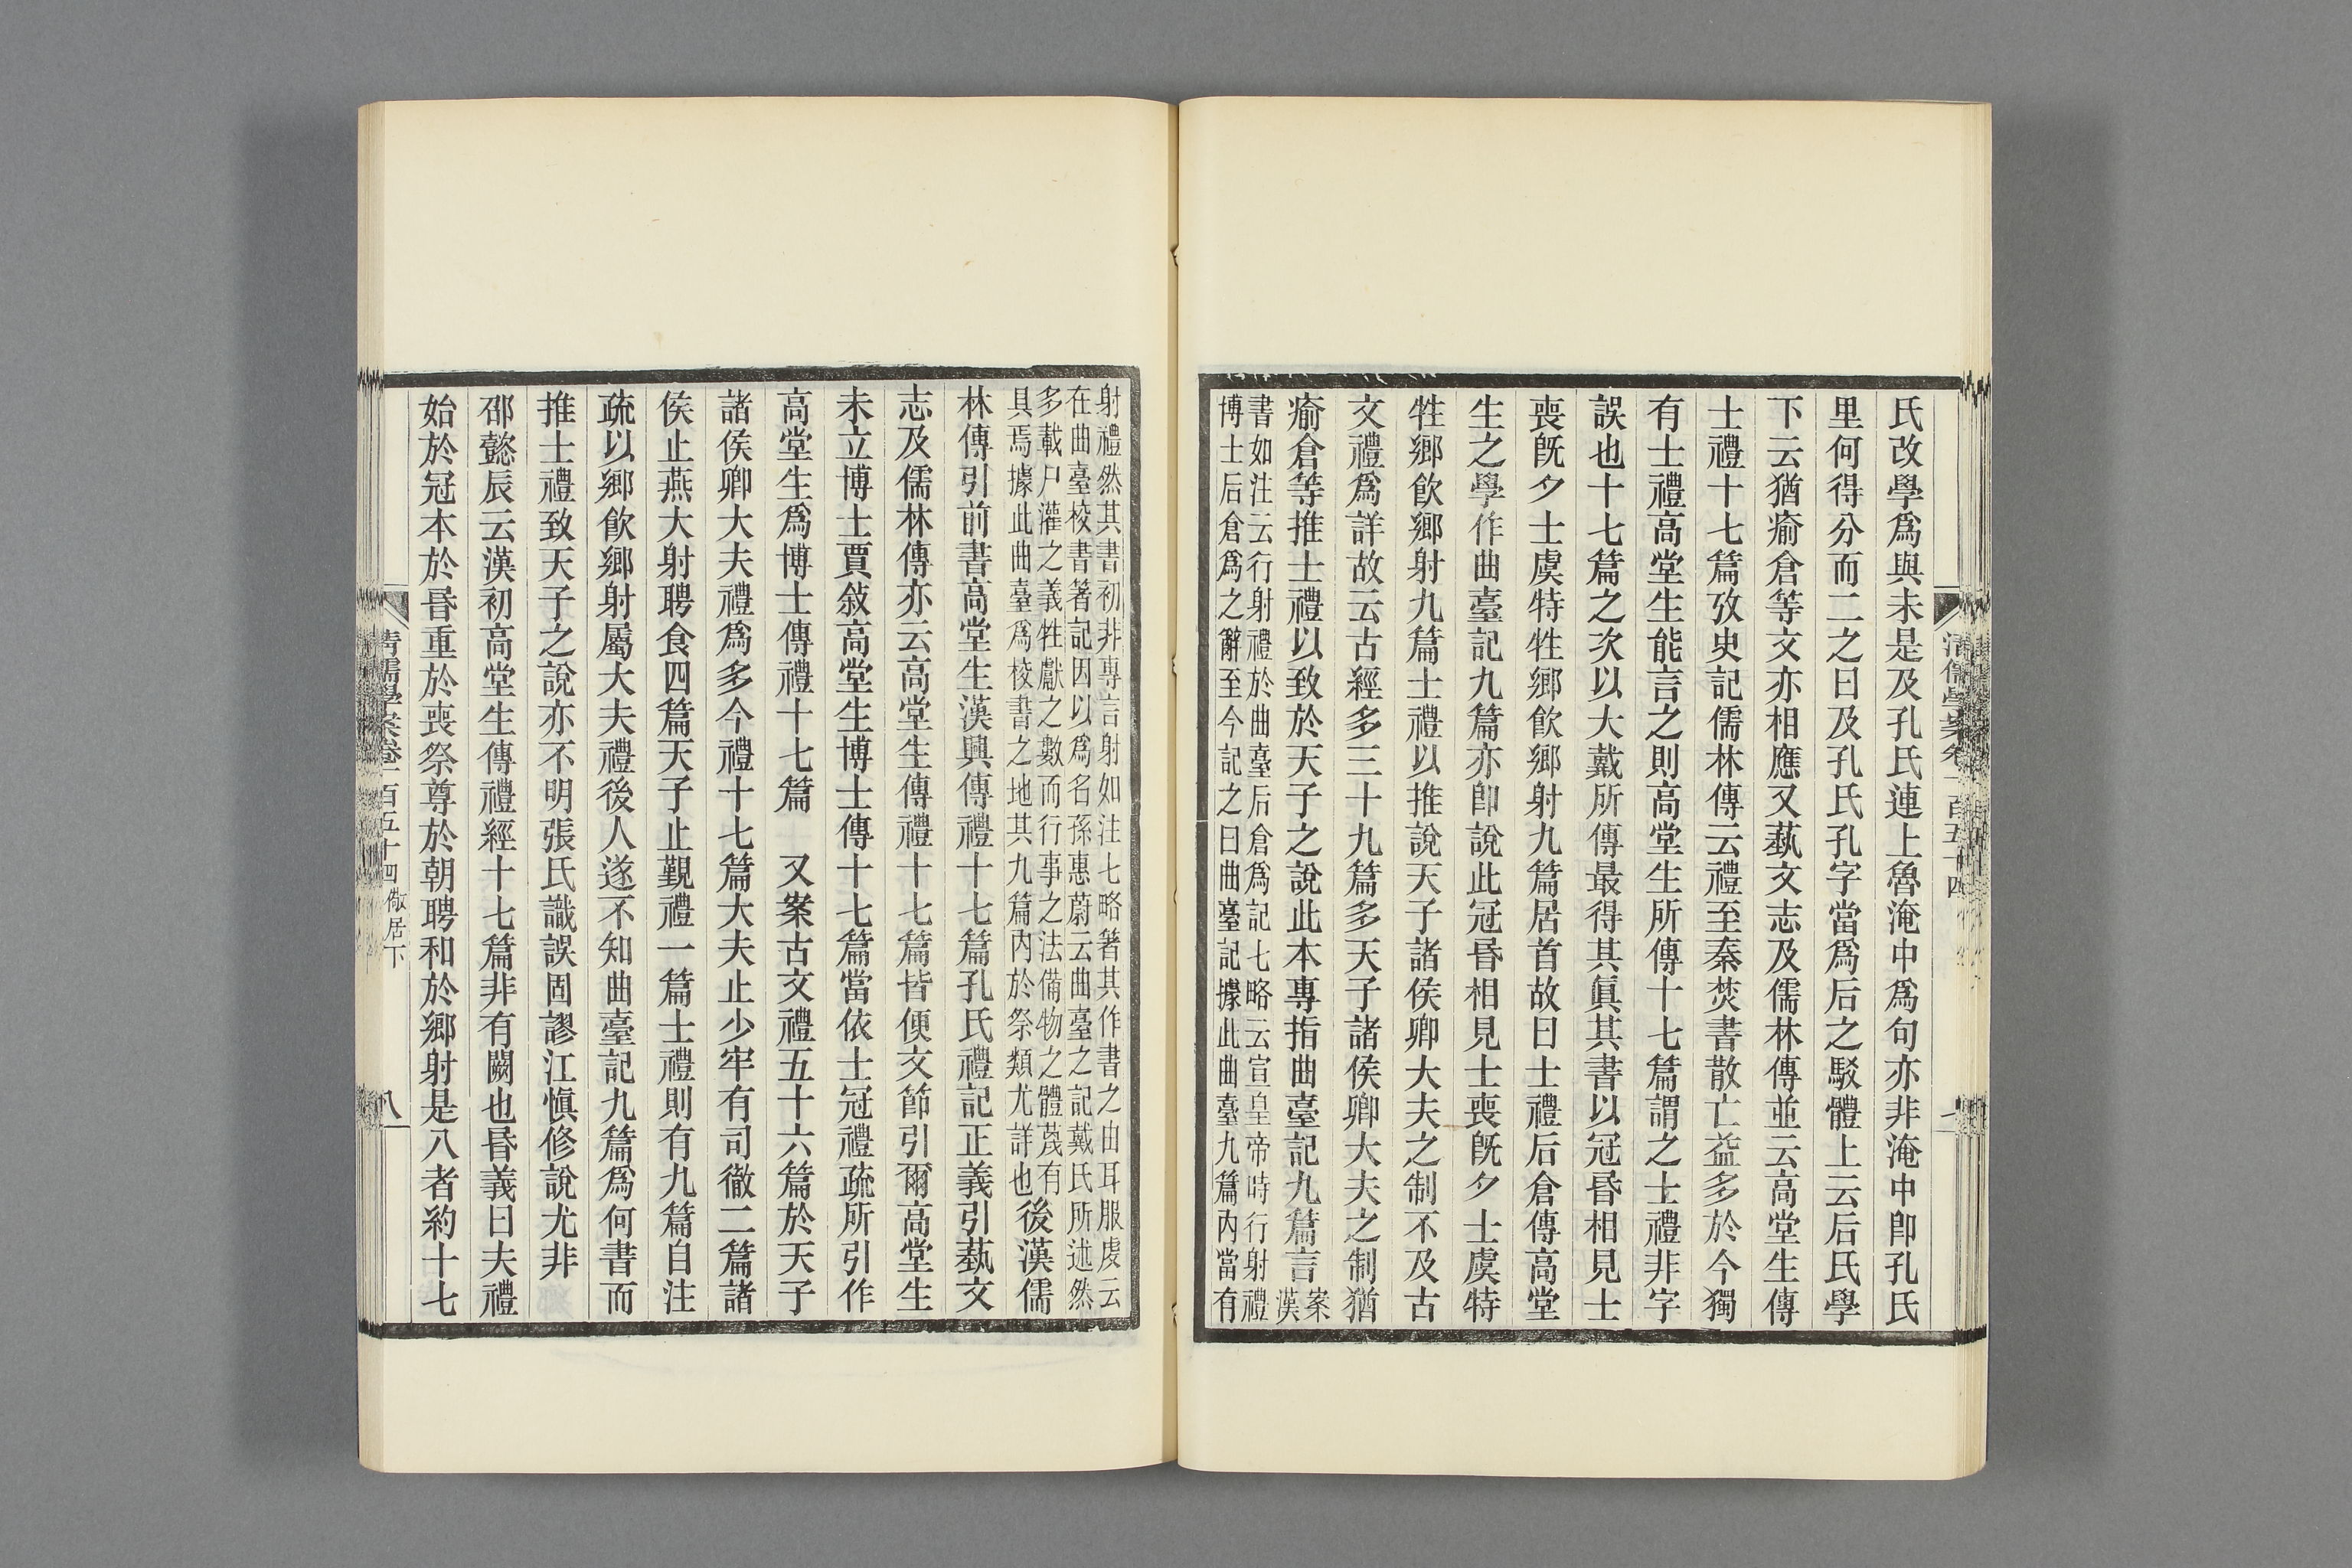 氏改學爲與未是及孔氏連上魯淹中爲句亦非淹中卽孔氏
里何得分而二之曰及孔氏孔字當爲后之駁體上云后氏學
下云猶瘉倉等文亦相應又蓺文志及儒林傳並云高堂生傳
士禮十七篇攷史記儒林傳云禮至秦焚書散亡益多於今獨
有士禮高堂生能言之則高堂生所傳十七篇謂之士禮非字
誤也十七篇之次以大戴所傳最得其眞其書以冠昏相見士
喪旣夕士虞特牲鄉飮鄉射九篇居首故曰士禮后倉傳高堂
生之學作曲臺記九篇亦卽說此冠昏相見士喪旣夕士虞特
牲鄉飮鄉射九篇士禮以推說天子諸侯卿大夫之制不及古
文禮爲詳故云古經多三十九篇多天子諸侯卿大夫之制猶
瘉倉等推士禮以致於天子之說此本專指曲臺記九篇言案漢
書如注云行射禮於曲臺后倉爲記七略云宣皇帝時行射禮
博士后倉爲之辭至今記之曰曲臺記據此曲臺九篇內當有
清儒學案卷一百五十四
射禮然其書初非專言射如注七略著其作書之由耳服虔云
在曲臺校書著記因以爲名孫惠蔚云曲臺之記戴氏所述然
多載尸灌之義牲獻之數而行事之法備物之體蔑有
具焉據此曲臺爲校書之地其九篇內於祭類尤詳也後漢儒
林傳引前書高堂生漢興傳禮十七篇孔氏禮記正義引蓺文
志及儒林傳亦云高堂生傳禮十七篇皆便文節引爾高堂生
未立博士賈敘高堂生博士傳十七篇當依士冠禮疏所引作
高堂生爲博士傳禮十七篇　又案古文禮五十六篇於天子
諸侯卿大夫禮爲多今禮十七篇大夫止少牢有司徹二篇諸
侯止燕大射聘食四篇天子止覲禮一篇士禮則有九篇自注
疏以鄉飮鄉射屬大夫禮後人遂不知曲臺記九篇爲何書而
推士禮致天子之說亦不明張氏識誤固謬江愼修說尤非
邵懿辰云漢初高堂生傳禮經十七篇非有闕也昏義曰夫禮
始於冠本於昏重於喪祭尊於朝聘和於鄉射是八者約十七
清儒學案卷一百五十四　儆居下
八